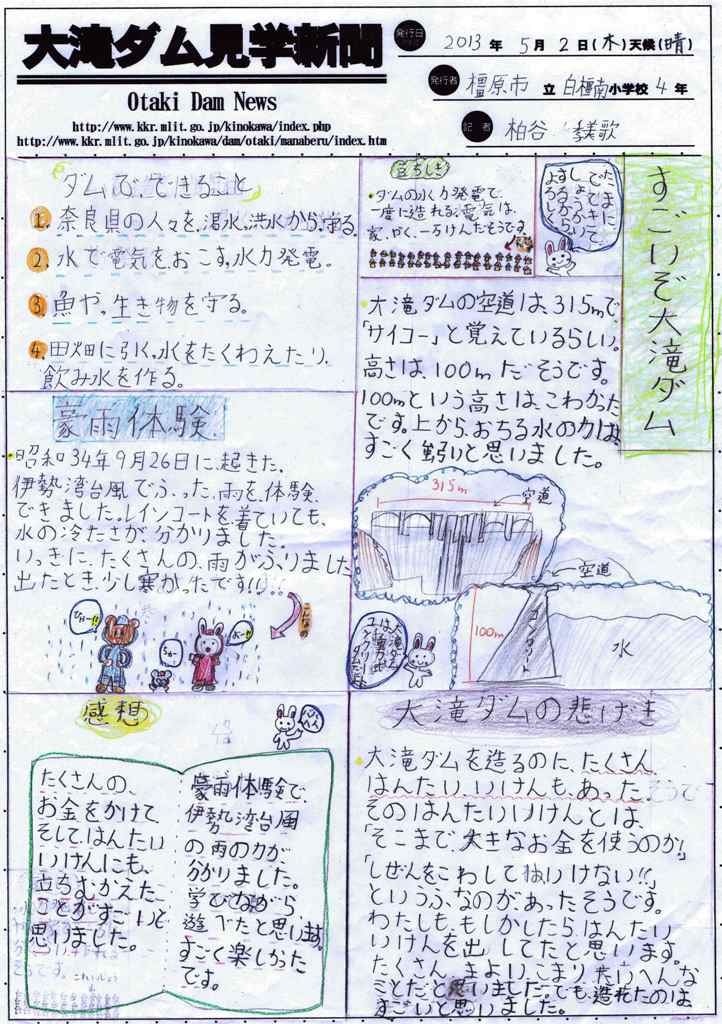 大滝ダム見学新聞
Otaki Dam News
http://www.kkr.mlit.go.jp/kinokawa/index.php
http://www.kkr.mlit.go.jp/kinokawa/dam/otaki/manaberu/index.htm
発行日 2013年5月2日(木)天候(晴)
発行者 橿原市立白橿南小学校4年
記者 柏谷
すごいぞ大滝ダム
豆ちしき
・ダムの水力発電で、
一度に造れる電気は、
家、やく、一万けんだそうです。
大滝ダムの空道は、315mで
「サイコー」と覚えているらしい。
高さは、100mだそうです。
100mという高さは、こわかった
です。上から、おちる水の力は、
すごく強いと思いました。
315m
空道
空道
100m
コンクリート
水
ダムで、できること
1. 奈良県の人々を、渇水、洪水から、守る。
2. 水で電気をおこす、水力発電。
3. 魚や、生き物を守る。
4. 田畑に引く、水をたくわえたり、
飲み水を作る。
豪雨体験
・昭和34年9月26日に起きた、
伊勢湾台風でふった、雨を、体験
できました。レインコートを着ていても、
水の冷たさが、分かりました。
いっきに、たくさんの、雨がふりました
出たとき、少し寒かったです!!
こんなの
大滝ダムの悲げき
大滝ダムを造るのに、たくさん、
はんたい、いけんも、あった、そうで
そのはんたいいけんとは、
「そこまで、大きなお金を使うのか!」
「しぜんをこわしてはいけない!!」
というふなのがあったそうです。
わたしも、もしかしたら、はんたい、
いけんを出してたと思います。
たくさん、まよい、こまり、たいへんな
ことだと思いました。でも、造れたのは、
すごいと思いました。
感想
豪雨体験で、
伊勢湾台風
の雨の力が、
分かりました。
学びながら
遊べたと思います。
すごく楽しかった
です。
たくさんの、
お金をかけて、
そして、はんたい
いけんにも、
立ちむかえた、
ことがすごいと
思いました。